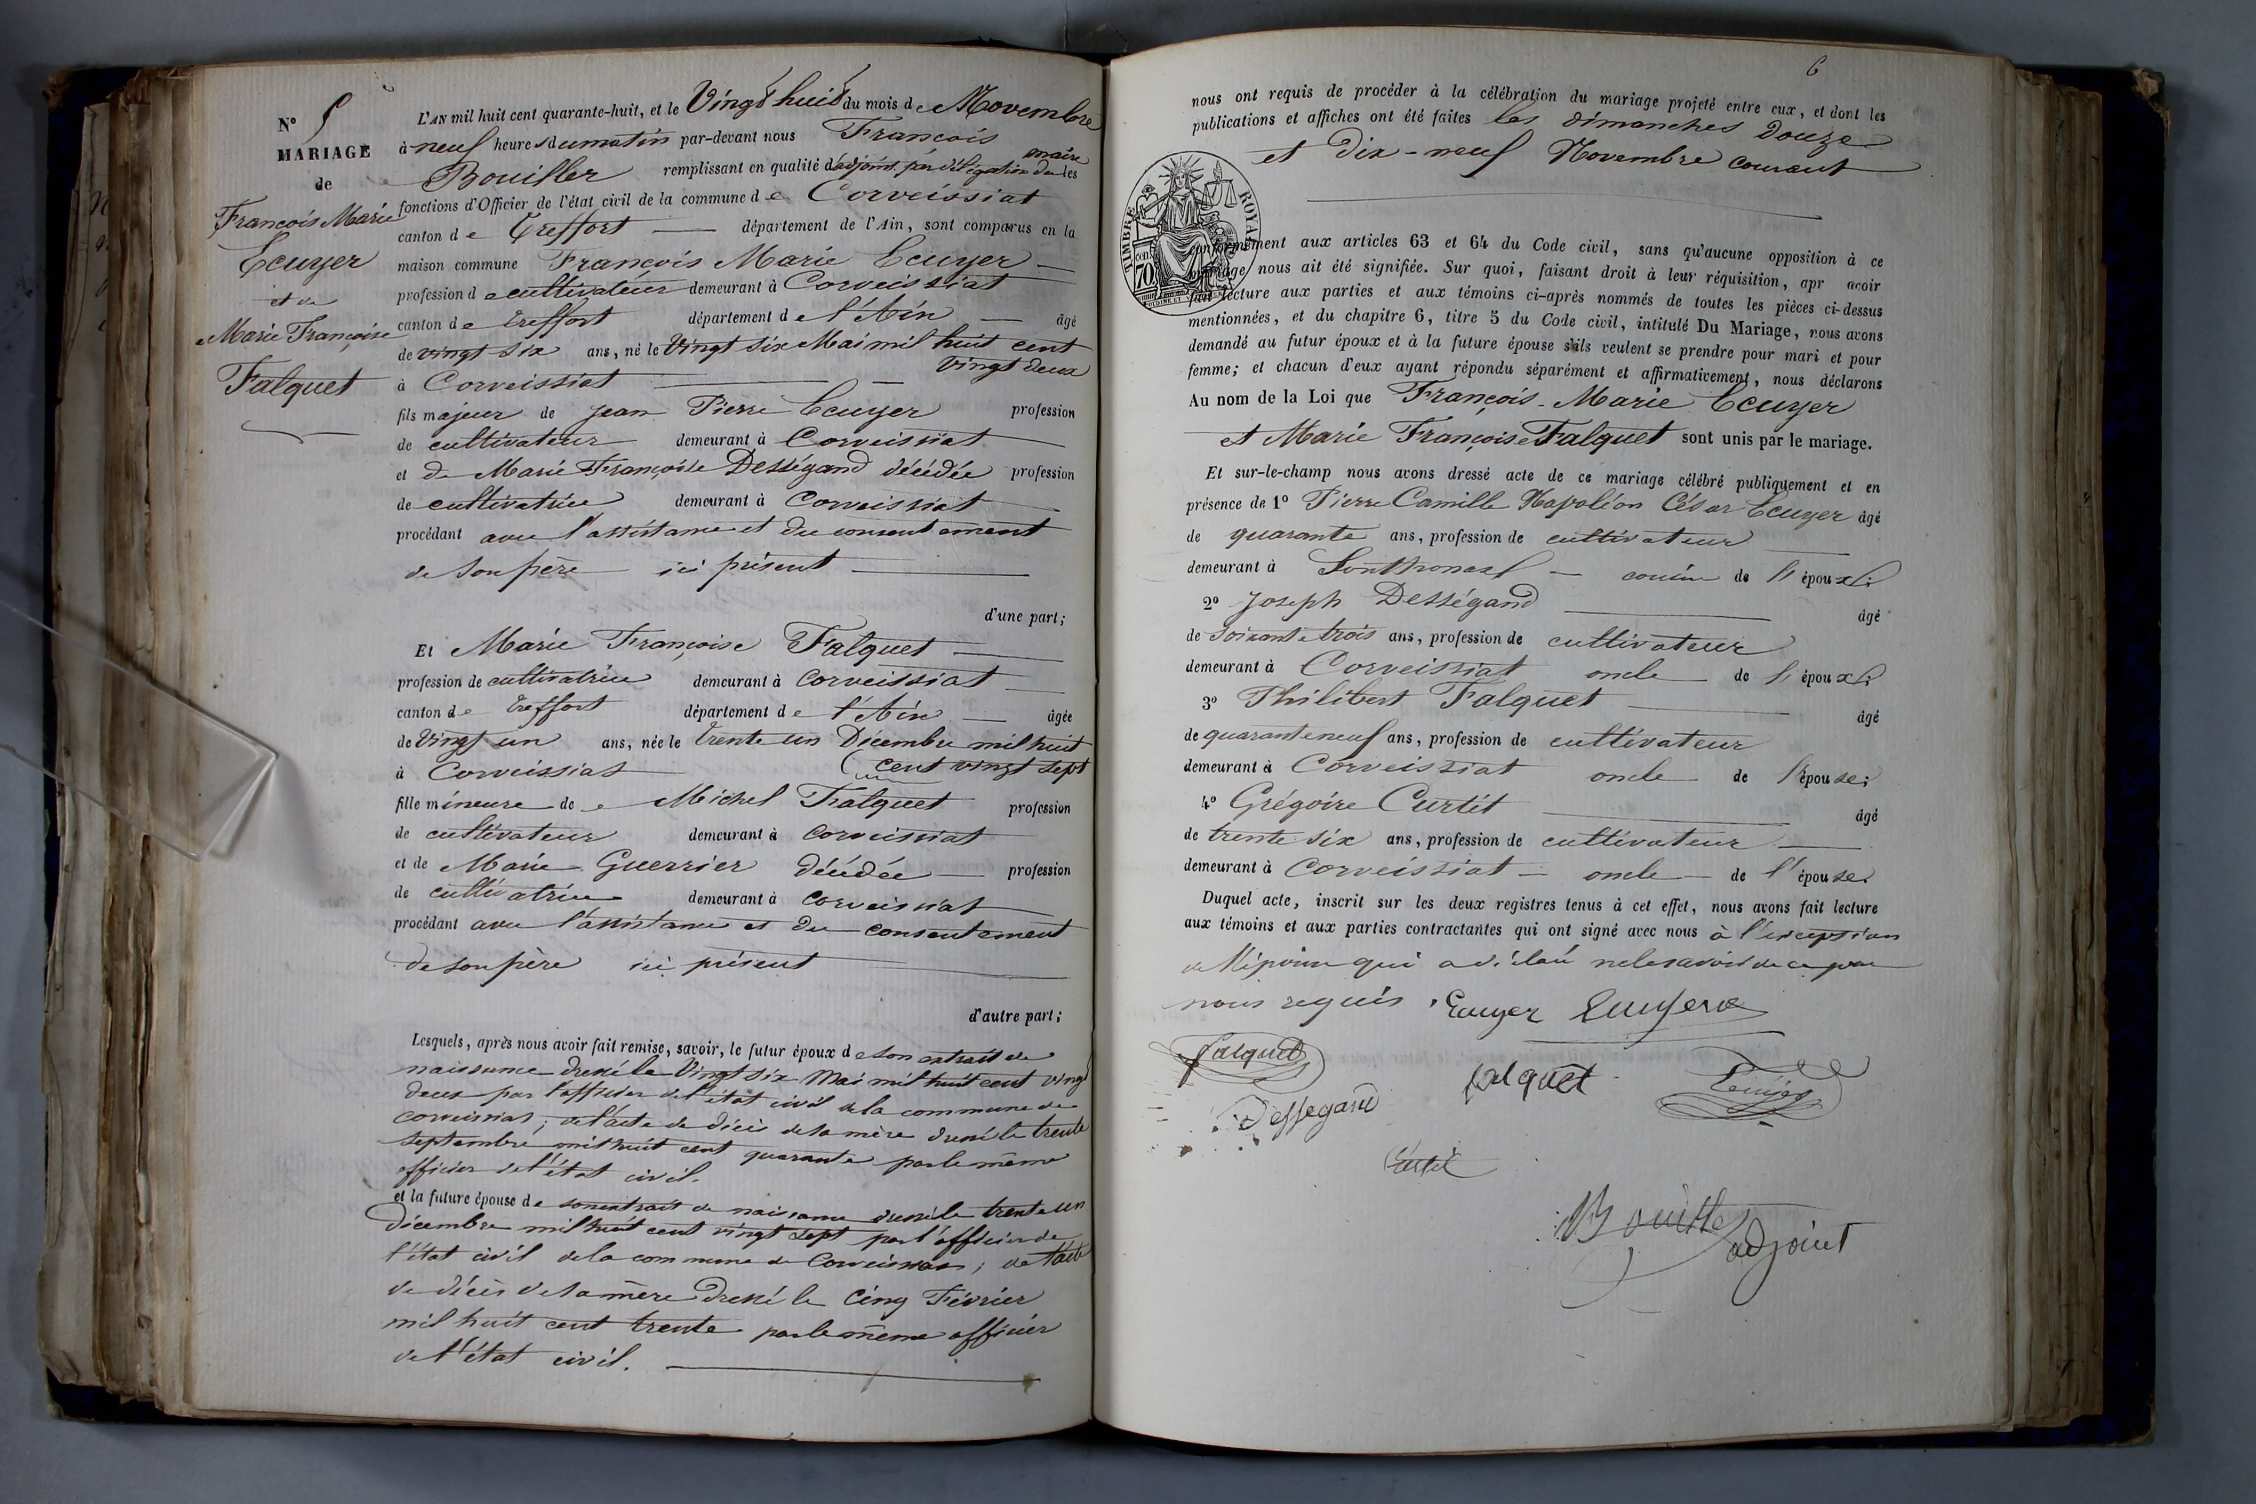 N° 5
MARIAGE
de
François Marie
Ecuyer
et de
Marie Françoise
Falquet
L'AN mil huit cent quarante-huit, et le Vingt huit du mois de Novembre
à neuf heures du matin par-devant nous François
Bouiller remplissant en qualité d'adjoint par délégation du maire les
fonctions d'Officier de l'état civil de la commune de Corveissiat
canton de Treffort département de l'Ain, sont comparus en la
maison commune François Marie Ecuyer
profession de cultivateur demeurant à Corveissiat
canton de treffort département de l'Ain âgé
de vingt six ans, né le Vingt six Mai mil huit cent
vingt deux
à Corveissiat
fils majeur de Jean Pierre Ecuyer profession
de cultivateur demeurant à Corveissiat
et de Marie Françoise Dességand décédée profession
de cultivatrice demeurant à Corveissiat
procédant avec l'assistance et du consentement
de son père ici présent
d'une part;
Et Marie Françoise Falquet
profession de cultivatrice demeurant à Corveissiat
canton de treffort département de l'Ain âgée
de Vingt un ans, née le trente un Décembre mil huit
cent vingt sept
à Corveissiat
fille mineure de Michel Falquet profession
de cultivateur demeurant à Corveissiat
et de Marie Guerrier décédée profession
de cultivatrice demeurant à Corveissiat
procédant avec l'assistance et du consentement
de son père ici présent
d'autre part;
Lesquels, après nous avoir fait remise, savoir, le futur époux de son extrait de
naissance dressé le Vingt six Mai mil huit cent vingt
deux par l'officier de l'état civil de la commune de
Corveissiat; de l'acte de décès de sa mère dressé le trente
septembre mil huit cent quarante par le même
officier de l'état civil.
et la future épouse de son extrait de naissance dressé le trente un
décembre mil huit cent vingt sept par l'officier de
l'état civil de la commune de Corveissiat; de l'acte
de décès de sa mère dressé le cinq Février
mil huit cent trente par le même officier
de l'état civil.
6
nous ont requis de procéder à la célébration du mariage projeté entre eux, et dont les
publications et affiches ont été faites les dimanches Douze
et Dix-neuf Novembre courant
TIMBRE ROYAL
70 cen
conformément aux articles 63 et 64 du Code civil, sans qu'aucune opposition à ce
mariage nous ait été signifiée. Sur quoi, faisant droit à leur réquisition, apr avoir
fait lecture aux parties et aux témoins ci-après nommés de toutes les pièces ci-dessus
mentionnées, et du chapitre 6, titre 5 du Code civil, intitulé Du Mariage, nous avons
demandé au futur époux et à la future épouse s'ils veulent se prendre pour mari et pour
femme; et chacun d'eux ayant répondu séparément et affirmativement, nous déclarons
Au nom de la Loi que François-Marie Ecuyer
et Marie Françoise Falquet sont unis par le mariage.
Et sur-le-champ nous avons dressé acte de ce mariage célébré publiquement et en
présence de 1° Pierre Camille Napoléon César Ecuyer âgé
de quarante ans, profession de cultivateur
demeurant à cousin de l'époux;
2° Joseph Dességand âgé
de soixante trois ans, profession de cultivateur
demeurant à Corveissiat oncle de l'époux;
3° Philibert Falquet âgé
de quarante neuf ans, profession de cultivateur
demeurant à Corveissiat oncle de l'épouse;
4° Grégoire Curtit âgé
de trente six ans, profession de cultivateur
demeurant à Corveissiat oncle de l'épouse.
Duquel acte, inscrit sur les deux registres tenus à cet effet, nous avons fait lecture
aux témoins et aux parties contractantes qui ont signé avec nous à l'exception
de l'épouse qui a déclaré ne le savoir de ce par
nous requis.
Ecuyer Ecuyer
falquet falquet Ecuyer
Dessegand
Curtit
Bouiller
adjoint